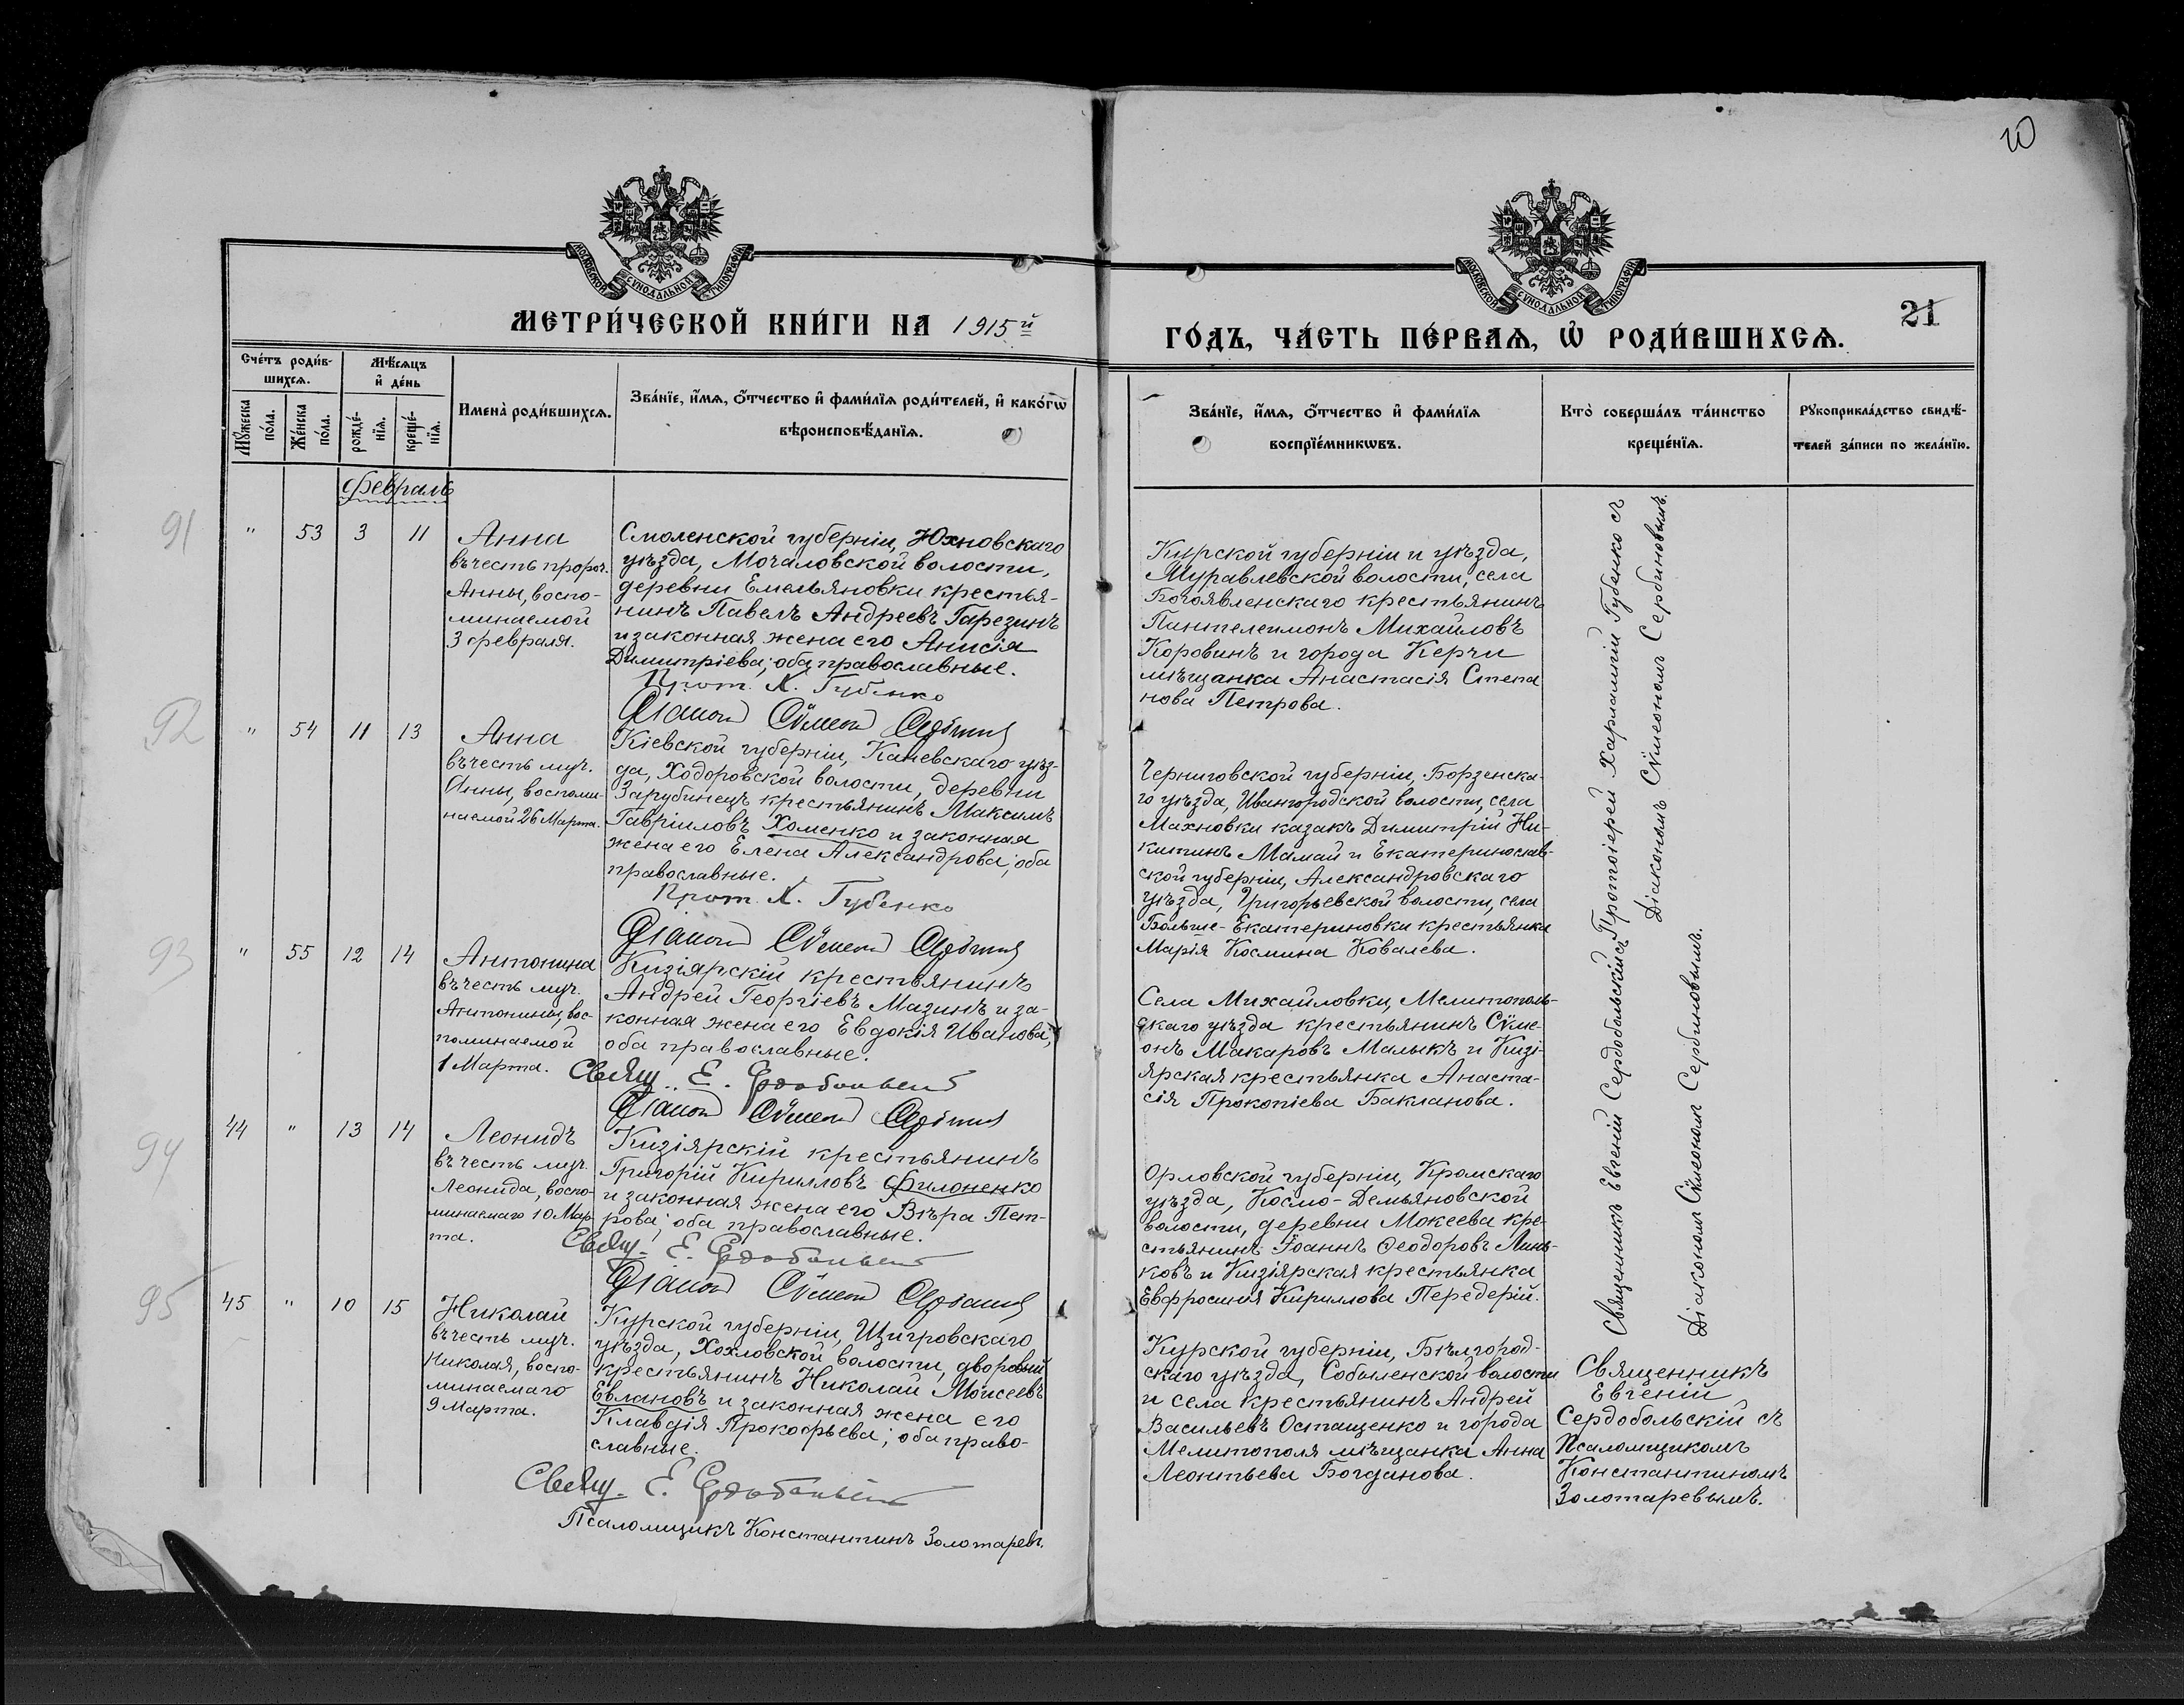 20
МОСКОВСКОЙ СУНОДАЛЬНОЙ ТИПОГРАФІИ
МОСКОВСКОЙ СУНОДАЛЬНОЙ ТИПОГРАФІИ
МЕТРИ́ЧЕСКОЙ КНИ́ГИ НА 1915й
ГО́ДЪ, ЧА́СТЬ ПЕ́РВАѦ, Ѡ҆ РОДИ́ВШИХСѦ.
21
Сче́тъ роди́в-
шихсѧ.
Мѣ́сѧцъ
и҆ де́нь
Мꙋ́жеска
по́ла.
Же́нска
по́ла.
рожде́-
нїѧ.
креще́-
нїѧ.
Имена̀ роди́вшихсѧ.
Зва́нїе, и҆́мѧ, ѻ҆́тчество и҆ фами́лїѧ роди́телей, и҆ како́гѡ
вѣроисповѣ́данїѧ.
Зва́нїе, и҆́мѧ, ѻ҆́тчество и҆ фами́лїѧ
воспрїе́мникѡвъ.
Кто̀ соверша́лъ та́инство
креще́нїѧ.
Рꙋкоприкла́дство свидѣ́-
телей за́писи по жела́нїю.
Февраль
91
" 53 3 11
Анна
въ честь пророч.
Анны, воспо-
минаемой
3 февраля.
Смоленской губерніи, Юхновскаго
уѣзда, Мочаловской волости,
деревни Емельяновки крестья-
нинъ Павелъ Андреевъ Гарезинъ
и законная жена его Анисія
Димитріева; оба православные.
Прот. Х. Губенко
Діаконъ Сѵмеонъ Сербиновъ
Курской губерніи и уѣзда,
Муравлевской волости, села
Богоявленскаго крестьянинъ
Пантелеимонъ Михайловъ
Коровинъ и города Керчи
мѣщанка Анастасія Степа
нова Петрова.
Протоіерей Харлампій Губенко съ
Діакономъ Сѵмеономъ Сербиновымъ.
92
" 54 11 13
Анна
въ честь муч.
Анны, воспоми-
наемой 26 Марта.
Кіевской губерніи, Каневскаго уѣз-
да, Ходоровской волости, деревни
Зарубинецъ крестьянинъ Максимъ
Гавріиловъ Хоменко и законная
жена его Елена Александрова; оба
православные.
Прот. Х. Губенко
Діаконъ Сѵмеонъ Сербиновъ
Черниговской губерніи, Борзенска-
го уѣзда, Ивангородской волости, села
Махновки казакъ Димитрій Ни-
китинъ Мамай и Екатеринослав-
ской губерніи, Александровскаго
уѣзда, Григорьевской волости, села
Больше-Екатериновки крестьянка
Марія Космина Ковалева.
93
" 55 12 14
Антонина
въ честь муч.
Антонины, вос-
поминаемой
1 Марта.
Кизіярскій крестьянинъ
Андрей Георгіевъ Мазинъ и за-
конная жена его Евдокія Иванова;
оба православные.
Свящ. Е. Сердобольскій
Діаконъ Сѵмеонъ Сербиновъ
Села Михайловки, Мелитополь-
скаго уѣзда крестьянинъ Сѵме-
онъ Макаровъ Малыкъ и Кизі-
ярская крестьянка Анаста-
сія Прокопіева Бакланова.
Священникъ Евгеній Сердобольскій съ
Діакономъ Сѵмеономъ Сербиновымъ.
94
44 " 13 14
Леонидъ
въ честь муч.
Леонида, воспо-
минаемаго 10 Мар-
та.
Кизіярскій крестьянинъ
Григорій Кирилловъ Филоненко
и законная жена его Вѣра Пет-
рова; оба православные.
Свящ. Е. Сердобольскій
Діаконъ Сѵмеонъ Сербиновъ
Орловской губерніи, Кромскаго
уѣзда, Космо-Демьяновской
волости, деревни Мокеева кре-
стьянинъ Іоаннъ Ѳеодоровъ Линь-
ковъ и Кизіярская крестьянка
Евфросинія Кириллова Передерій.
95
45 " 10 15
Николай
въ честь муч.
Николая, воспо-
минаемаго
9 Марта.
Курской губерніи, Щигровскаго
уѣзда, Хохловской волости, дворовый
крестьянинъ Николай Моисеевъ
Евлановъ и законная жена его
Клавдія Прокофьева; оба право-
славные.
Свящ. Е. Сердобольскій
Псаломщикъ Константинъ Золотаревъ.
Курской губерніи, Бѣлгород-
скаго уѣзда, Собыленской волости
и села крестьянинъ Андрей
Васильевъ Остащенко и города
Мелитополя мѣщанка Анна
Леонтьева Богданова.
Священникъ
Евгеній
Сердобольскій съ
Псаломщикомъ
Константиномъ
Золотаревымъ.